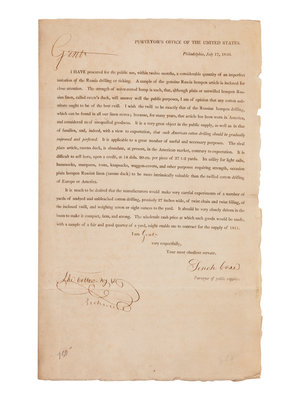 PURVEYOR'S OFFICE OF THE UNITED STATES.
Philadelphia, July 17, 1810.
Gent
I HAVE procured for the public use, within twelve months, a considerable quantity of an imperfect
imitation of the Russia drilling or ticking. A sample of the genuine Russia hempen which is inclosed for
close attention. The strength of water-rotted hemp is such, that, although plain or untwilled hempen Russia
linen, called raven's duck, will answer well the public purposes, I am of opinion that any cotton substitute
ought to be of the best twill. I wish the twill to be exactly that of the Russian hempen drilling,
which can be found in all our linen stores; because, for many years, that article has been worn in America,
and considered as of unimpeached produce. It is a very great object in the public supply, as well as in that
of families, and, indeed, with a view to exportation, that such American cotton drilling should be gradually
improved and preferred. It is applicable to a great number of useful and necessary purposes. The
plain article, raven's duck, is abundant, at present, in the American market, contrary to expectation. It is
difficult to sell here, upon a credit, at 14 dols. 50 cts. per piece of 37 1-2 yards. Its utility for light sails,
hammocks, marquees, tents, knapsacks, waggon-covers, and other purposes requiring strength, occasion
plain hempen Russia linen (ravens duck) to be more intrinsically valuable than the twilled cotton drilling
of Europe or America.
It is much to be desired that the manufacturers would make very careful experiments of a number of
yards of undyed and unbleached cotton drilling, precisely 27 inches wide, of twin chain and twine filling, of
the inclosed twill, and weighing seven or eight ounces to the yard. It should be very closely driven in the
loom to make it compact, firm, and strong. The wholesale cash price at which such goods would be made,
with a sample of a fair and good quarter of a yard, might enable me to contract for the supply of 1811.
I am Gent.
very respectfully,
Your most obedient servant,
Tench Coxe
Purveyor of public supplies.